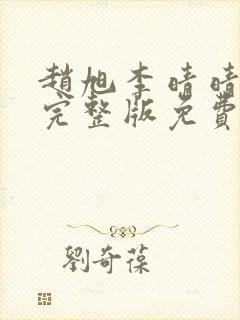 趙旭李晴晴
完整版免費
劉奇葆